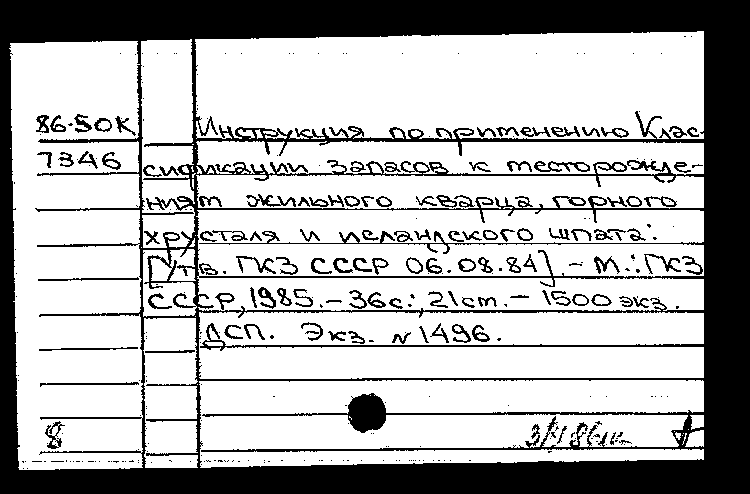 86-50К Инструкция по применению Клас-
7346 сификации запасов к месторожде-
ниям жильного кварца, горного
хрусталя и исландского шпата:
[Утв. ГКЗ СССР 06.08.84]. - М.: ГКЗ
СССР, 1985. - 36с.; 21см. - 1500 экз.
ДСП. Экз. №1496.
8